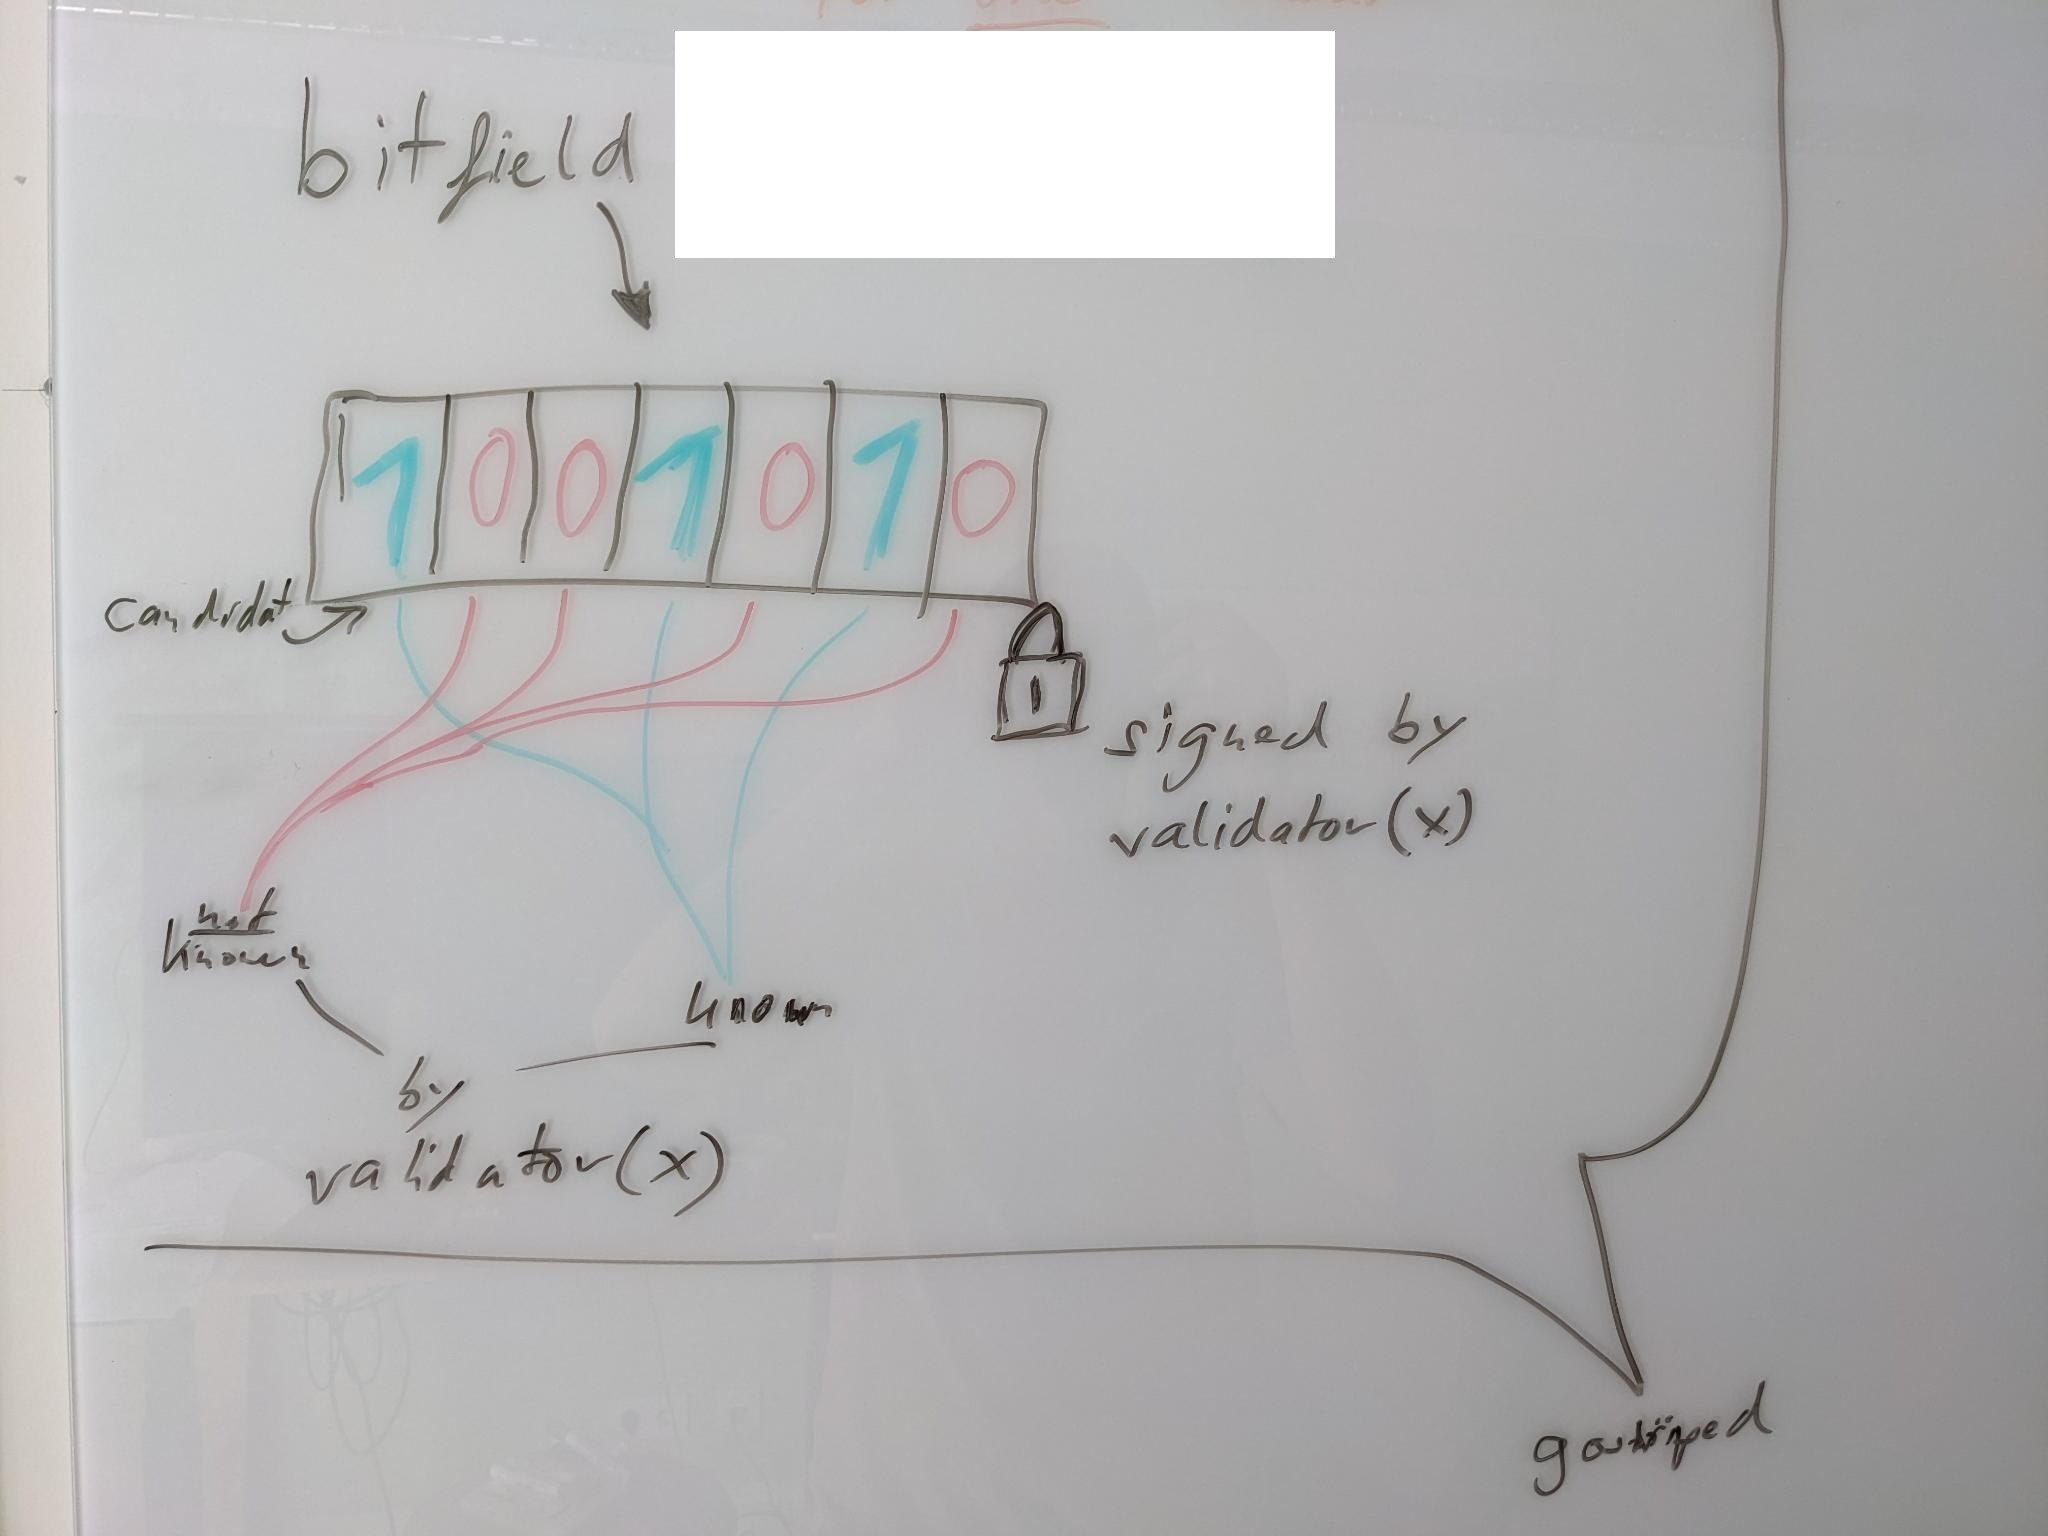 bitfield
1 0 0 1 0 1 0
candidat
signed by
validator(x)
not
known
known
by
validator(x)